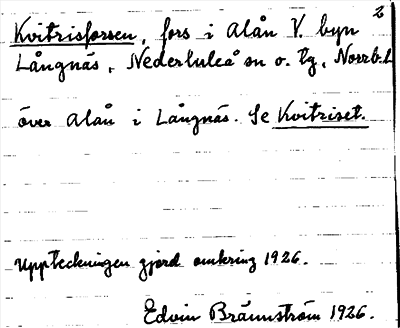 2
Kvitrisforsen, fors i Alån V. byn
Långnäs, Nederluleå sn o. tg, Norrb. l
över Alån i Långnäs. Se Kvitriset.
Uppteckningen gjord omkring 1926.
Edvin Brännström 1926.